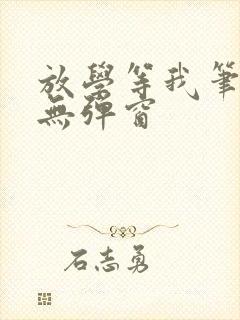 放學等我筆
無彈窗
石志勇